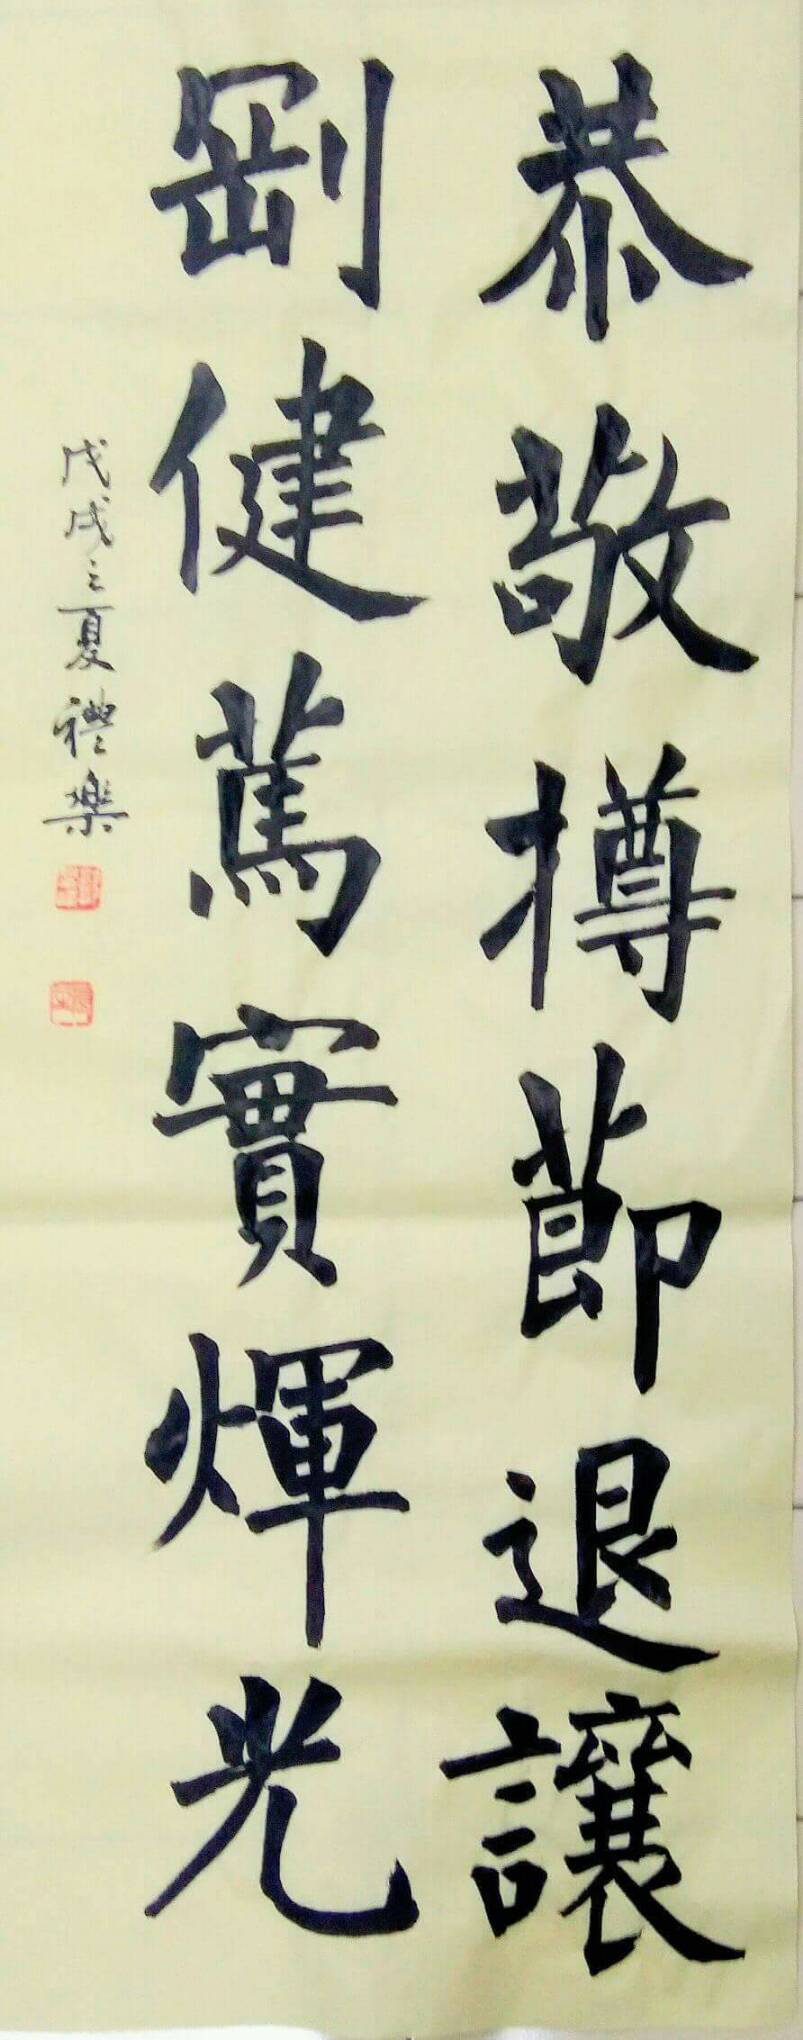 恭敬撙節退讓
剛健篤實輝光
戊戌之夏禮樂